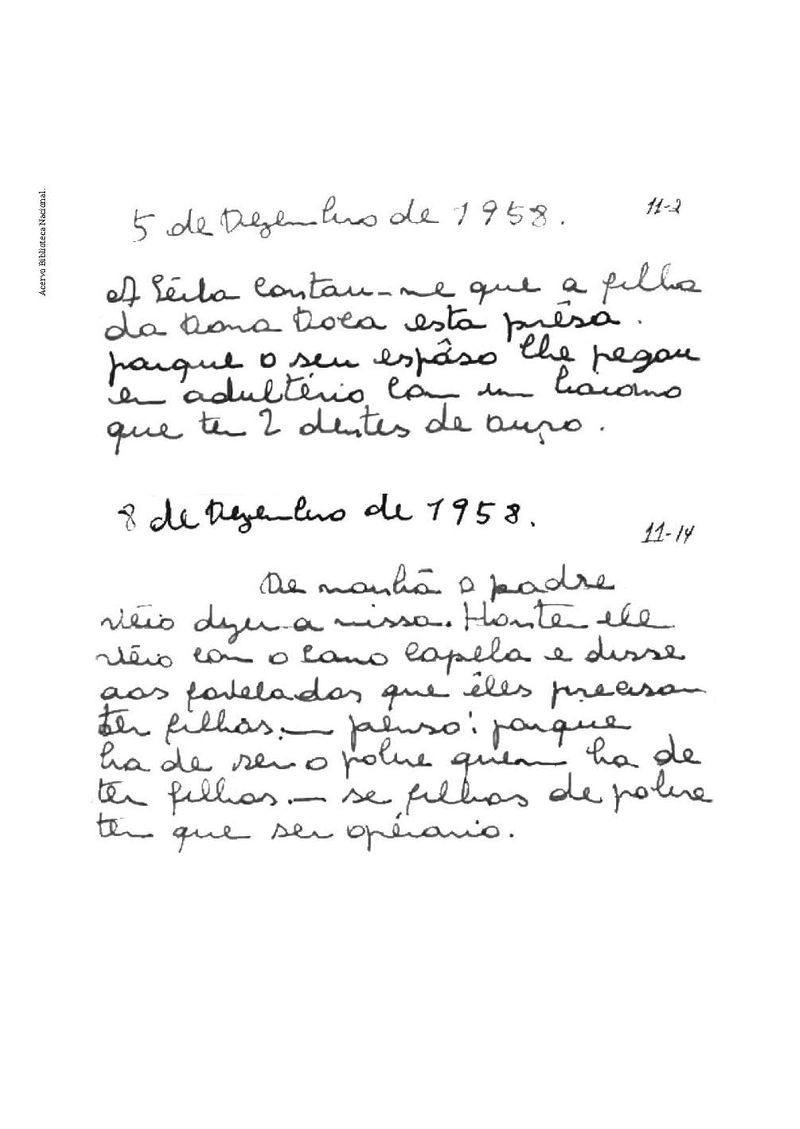 Acervo Biblioteca Nacional.
5 de Dezembro de 1958.
11-2
A Léila contou-me que a filha
da Dona Doca esta prêsa.
porque o seu espôso lhe pegou
em adultério com um hocomo
que tem 2 dentes de ouro.
8 de Dezembro de 1958.
11-14
De manhã o padre
vêio dizer a missa. Hontem ele
vêio com o carro capela e disse
aos favelados que êles precisam
ter filhos.— penso: porque
ha de ser o pobre quem ha de
ter filhos.— se filhos de pobre
tem que ser opérario.